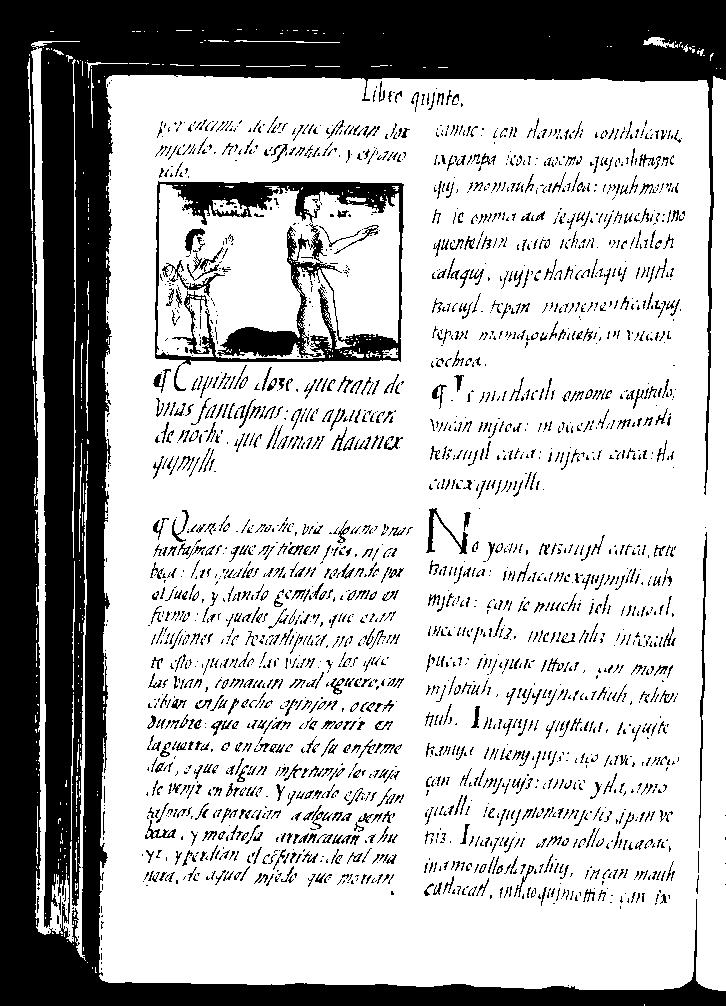 Libro qujnto.
por encima de los que estauan dor
mjendo, todo espantado, y espauo
rido.
¶ Capitulo doze, que trata de
vnas fantasmas: que aparecen
de noche, que llaman tlacanex
qujmjlli.
¶ Quando de noche, via alguno vnas
fantasmas: que nj tienen pies, nj ca
beça: las quales andan rodando por
el suelo, y dando gemidos, como en
fermo: las quales sabian, que eran
illusiones de tezcatlipuca, no obstan
te esto: quando las vian: y los que
las vian, tomauan mal aguero, con
cibian en su pecho opinjon, o certi
dumbre: que aujan de morir en
la guerra, o en breue de su enferme
dad, o que algun infortunjo les auja
de venjr en breue. Y quando estas fan
tasmas, se aparecian a alguna gente
baxa, y medrosa arrancauan a hu
yr, y perdian el espiritu: de tal ma
nera, de aquel mjedo que morian
camac: çan tlamach
ixpampa
quj, momauhcatlaloa:
ti
quenteltzin acito ichan, motlaloti
calaquj, qujpetlaticalaquj injtla
tzacujl, tepan mànenenticalaquj,
tepan in vncan
cochioa.
¶ Ic matlactli omome capitulo:
vncan mjtoa: in occentlamantli
tetzaujtl catca: injtoca catca: tla
canexqujmjlli.
No yoan, tetzaujtl catca, tete
tzaujaia: intlacanexqujmjlli. iuh
mjtoa: çan ie muchi ich inaoal,
inecuepaliz, inenextiliz intezcatli
puca: injquac ittoia, çan momj
mjlotiuh, qujqujnacatiuh, tehten
tiuh. Inaqujn qujttaia, iequjte
tzaujia aço iave, anoço
çan tlalmjqujz: anoce ytla, amo
qualli iequjmonamjctiz ipan ve
tziz. Inaqujn amo iollochicaoac,
inamo iollotlapaliuj, in çan mauh
catlacatl, çan ix